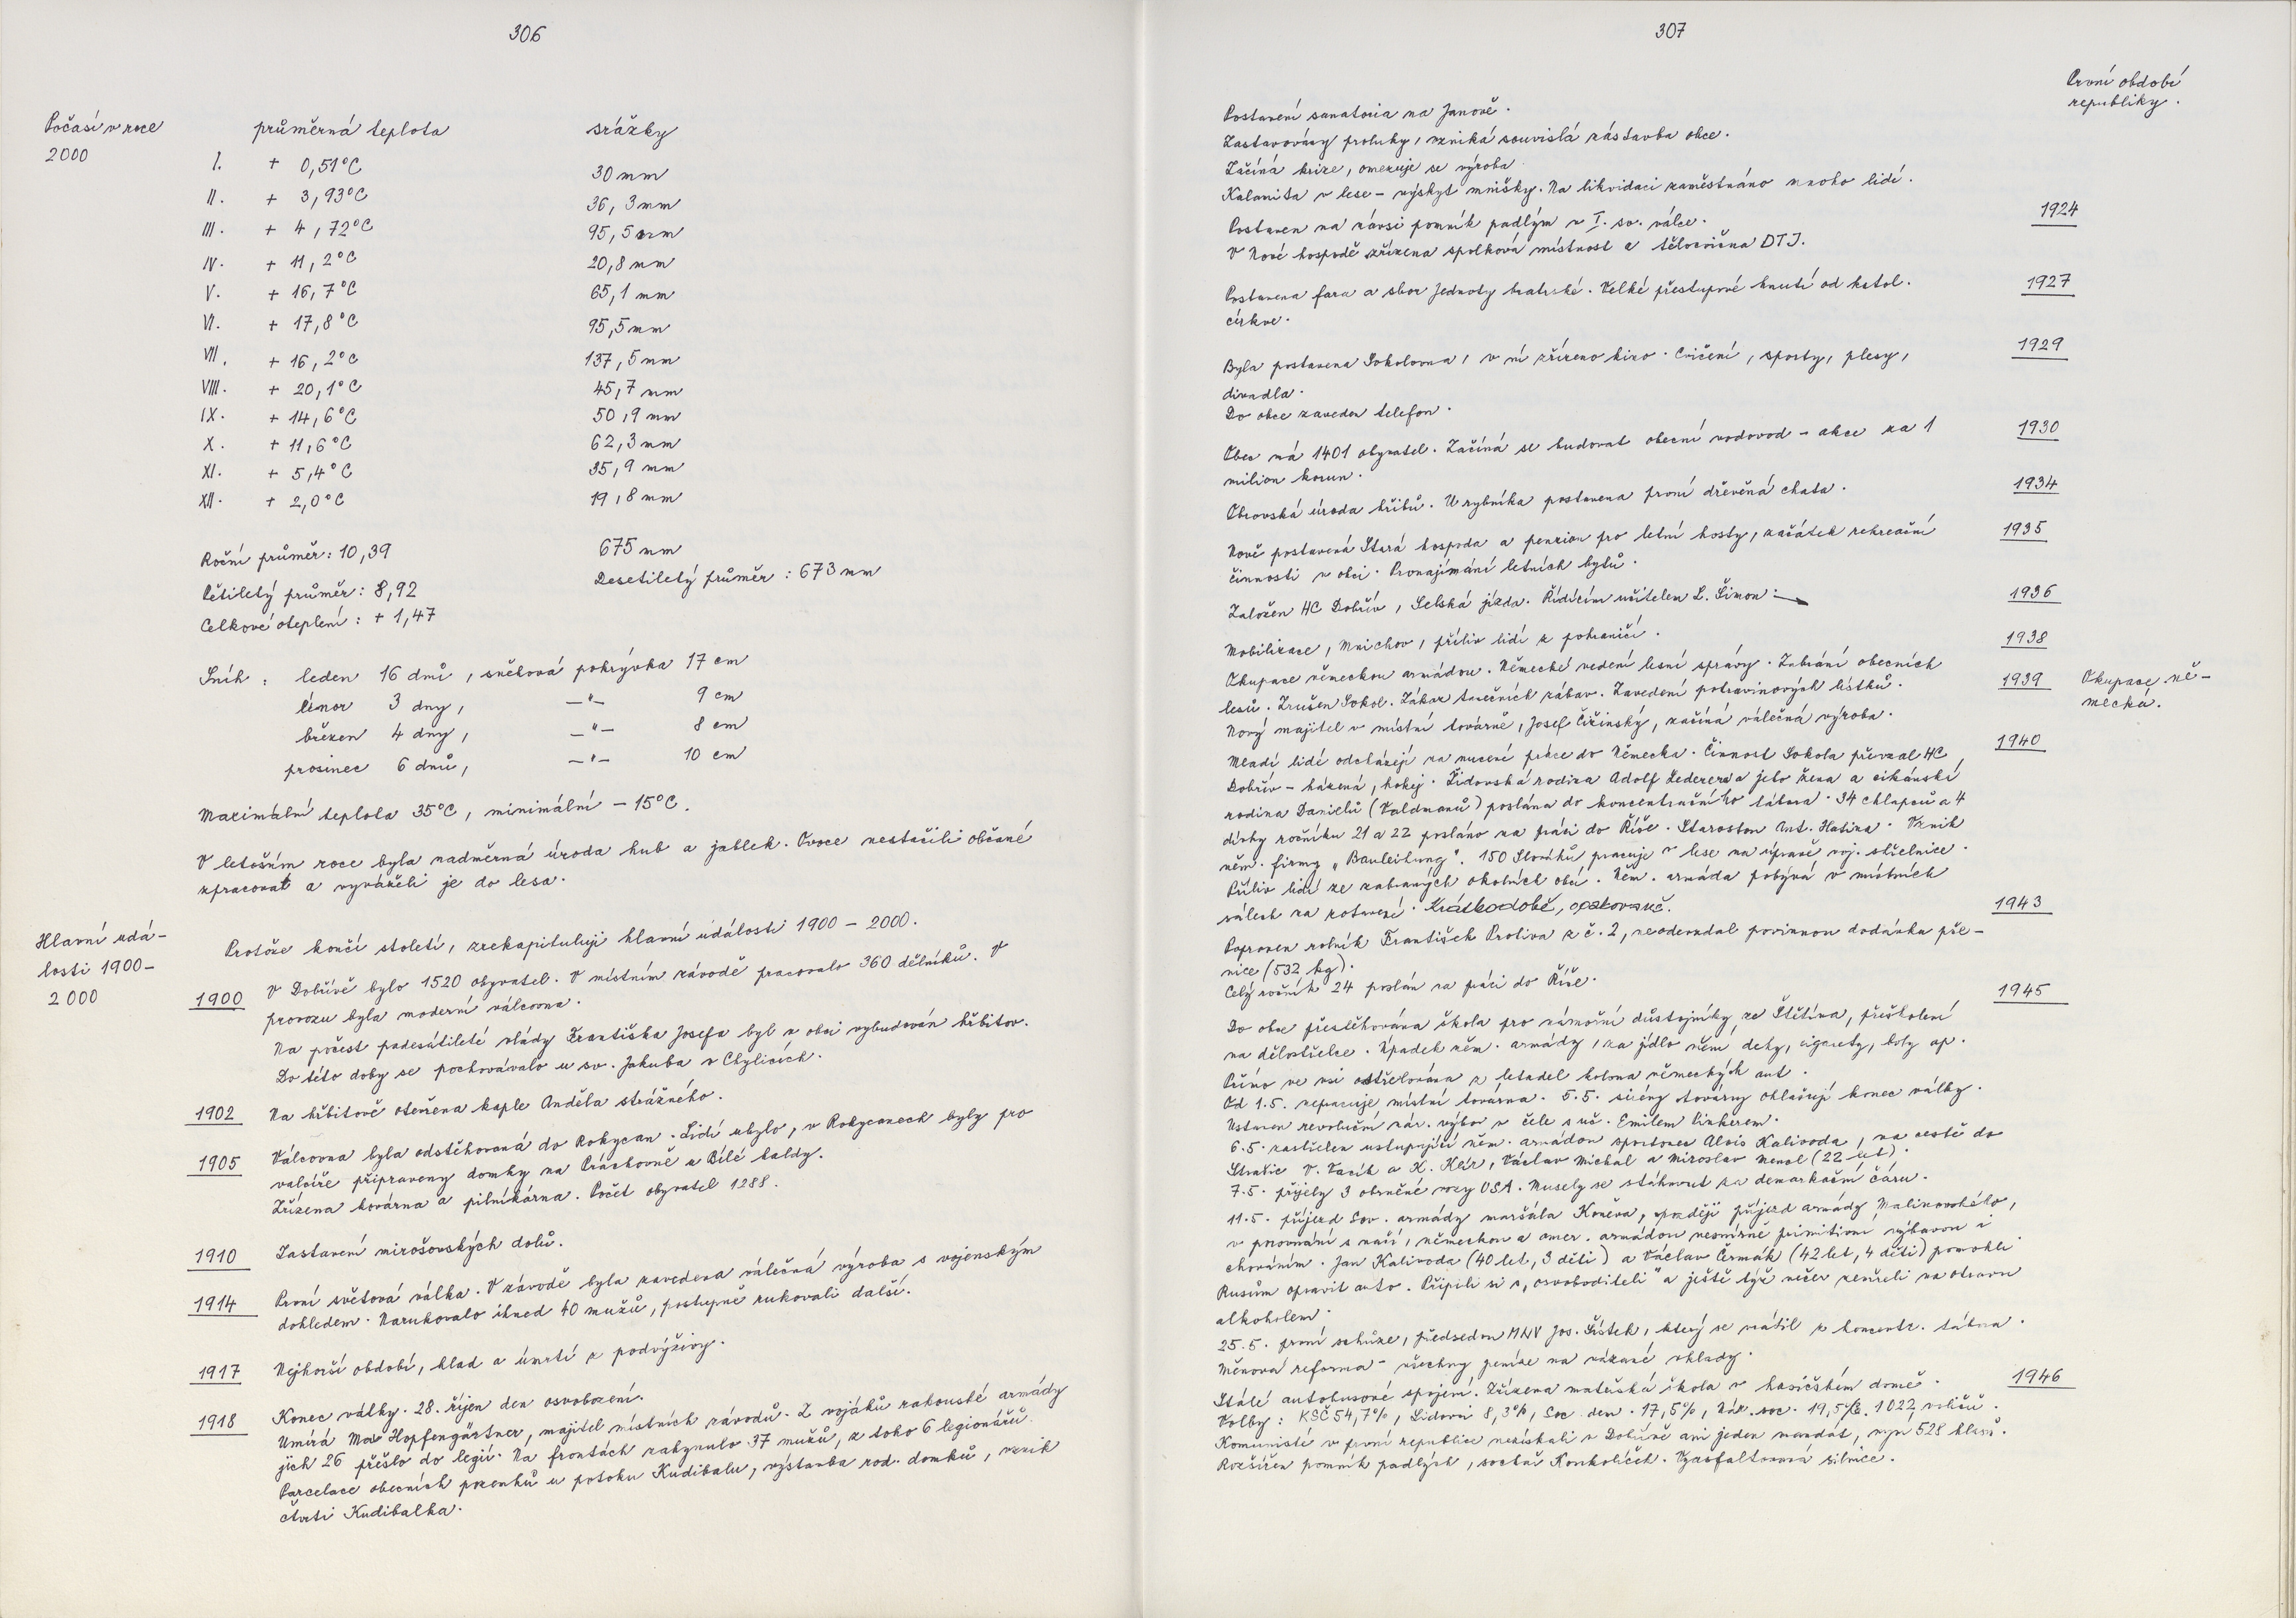 306
Počasí v roce
2000
průměrná teplota srážky
I. + 0,51°C 30 mm
II. + 3,93°C 36,3 mm
III. + 4,72°C 95,5 mm
IV. + 11,2°C 20,8 mm
V. + 16,7°C 65,1 mm
VI. + 17,8°C 95,5 mm
VII. + 16,2°C 137,5 mm
VIII. + 20,1°C 45,7 mm
IX. + 14,6°C 50,9 mm
X. + 11,6°C 62,3 mm
XI. + 5,4°C 35,9 mm
XII. + 2,0°C 19,8 mm
Roční průměr: 10,39 675 mm
Pětiletý průměr: 8,92 Desetiletý průměr: 673 mm
Celkové oteplení: + 1,47
Sníh: leden 16 dnů, sněhová pokrývka 17 cm
únor 3 dny, —"— 9 cm
březen 4 dny, —"— 8 cm
prosinec 6 dnů, —"— 10 cm
Maximální teplota 35°C, minimální – 15°C.
V letošním roce byla nadměrná úroda hub a jablek. Ovoce nestačili občané
zpracovat a vyváželi je do lesa.
Hlavní udá-
losti 1900-
2000
Protože končí století, zrekapituluji hlavní události 1900 – 2000.
1900 V Dobřívě bylo 1520 obyvatel. V místním závodě pracovalo 360 dělníků. V
provozu byla moderní válcovna.
Na počest padesátileté vlády Františka Josefa byl v obci vybudován hřbitov.
Do této doby se pochovávalo u sv. Jakuba v Chylicích.
1902 Na hřbitově otevřena kaple Anděla strážného.
1905 Válcovna byla odstěhovaná do Rokycan. Lidí ubylo, v Rokycanech byly pro
valcíře připraveny domky na Práchovně u Bílé haldy.
Zřízena kovárna a pilníkárna. Počet obyvatel 1288.
1910 Zastavení mirošovských dolů.
1914 První světová válka. V závodě byla zavedena válečná výroba s vojenským
dohledem. Narukovalo ihned 40 mužů, postupně rukovali další.
1917 Nejhorší období, hlad a úmrtí z podvýživy.
1918 Konec války. 28. říjen den osvobození.
Umírá Max Hopfengärtner, majitel místních závodů. Z vojáků rakouské armády
jich 26 přešlo do legií. Na frontách zahynulo 37 mužů, z toho 6 legionářů.
Parcelace obecních pozemků u potoku Kudibalu, výstavba rod. domků, vznik
čtvrti Kudibalka.
307
První období
republiky.
Postavení sanatoria na Janově.
Zastavovány proluky, vzniká souvislá zástavba obce.
Začíná krize, omezuje se výroba.
Kalamita v lese – výskyt mnišky. Na likvidaci zaměstnáno mnoho lidí.
Postaven na návsi pomník padlým v I. sv. válce. 1924
V Nové hospodě zřízena spolková místnost a tělocvična DTJ.
Postavena fara a sbor Jednoty bratrské. Velké přestupové hnutí od katol. 1927
církve.
Byla postavena Sokolovna, v ní zřízeno kino. Cvičení, sporty, plesy, 1929
divadla.
Do obce zaveden telefon.
Obec má 1401 obyvatel. Začíná se budovat obecní vodovod – akce za 1 1930
milion korun.
Obrovská úroda hřibů. U rybníka postavena první dřevěná chata. 1934
Nově postavená Stará hospoda a penzion pro letní hosty, začátek rekreační 1935
činnosti v obci. Pronajímání letních bytů.
Založen HC Dobřív, Selská jízda. Řídícím učitelem L. Šimon. 1936
Mobilizace, Mnichov, příliv lidí z pohraničí. 1938
Okupace německou armádou. Německé vedení lesní správy. Zabrání obecních 1939
lesů. Zrušen Sokol. Zákaz tanečních zábav. Zavedení potravinových lístků.
Okupace ně-
mecká.
Nový majitel v místní továrně, Josef Čižinský, začíná válečná výroba.
Mladí lidé odcházejí na nucené práce do Německa. Činnost Sokola převzal HC 1940
Dobřív – házená, hokej. Židovská rodina Adolf Lederera a jeho žena a cikánská
rodina Danielů (Valdmanů) poslána do koncentračního tábora. 34 chlapců a 4
dívky ročníku 21 a 22 posláno na práci do Říše. Starostou Ant. Hatina. Vznik
něm. firmy „Bauleitung". 150 Slováků pracuje v lese na úpravě voj. střelnice.
Příliv lidí ze zabraných okolních obcí. Něm. armáda pobývá v místních
sálech na zotavení. Krátkodobě, opakovaně.
Popraven rolník František Protiva z č. 2, neodevzdal povinnou dodávku pše- 1943
nice (532 kg).
Celý ročník 24 poslán na práci do Říše.
Do obce přestěhována škola pro námořní důstojníky ze Štětína, přeškolení 1945
na dělostřelce. Úpadek něm. armády, za jídlo mění deky, cigarety, boty ap.
Přímo ve vsi ostřelována z letadel kolona německých aut.
Od 1.5. nepracuje místní továrna. 5.5. sirény továrny ohlašují konec války.
Ustaven revoluční nár. výbor v čele s uč. Emilem Pinkerem.
6.5. zastřelen ustupující něm. armádou sportovec Alois Kalivoda, na cestě do
Strašic V. Vacík a K. Klír, Václav Michal a Miroslav Nencl (22 let).
7.5. přijely 3 obrněné vozy USA. Musely se stáhnout za demarkační čáru.
11.5. příjezd Sov. armády maršála Koněva, později příjezd armády Malinovského,
v porovnání s naší, německou a amer. armádou nesmírně primitivní výbavou i
chováním. Jan Kalivoda (40 let, 3 děti) a Václav Čermák (42 let, 4 děti) pomohli
Rusům opravit auto. Připili si s „osvoboditeli" a ještě týž večer zemřeli na otravu
alkoholem.
25.5. první schůze, předsedou MNV Jos. Šístek, který se vrátil z koncentr. tábora.
Měnová reforma – všechny peníze na vázané vklady.
Stálé autobusové spojení. Zřízena mateřská škola v hasičském domě. 1946
Volby: KSČ 54,7%, Lidovci 8,3%, Soc. dem. 17,5%, Nár. soc. 19,5%. 1022 voličů.
Komunisté v první republice nezískali v Dobřívě ani jeden mandát, nyní 528 hlasů.
Rozšířen pomník padlých, sochař Koukolíček. Vyasfaltovaná silnice.